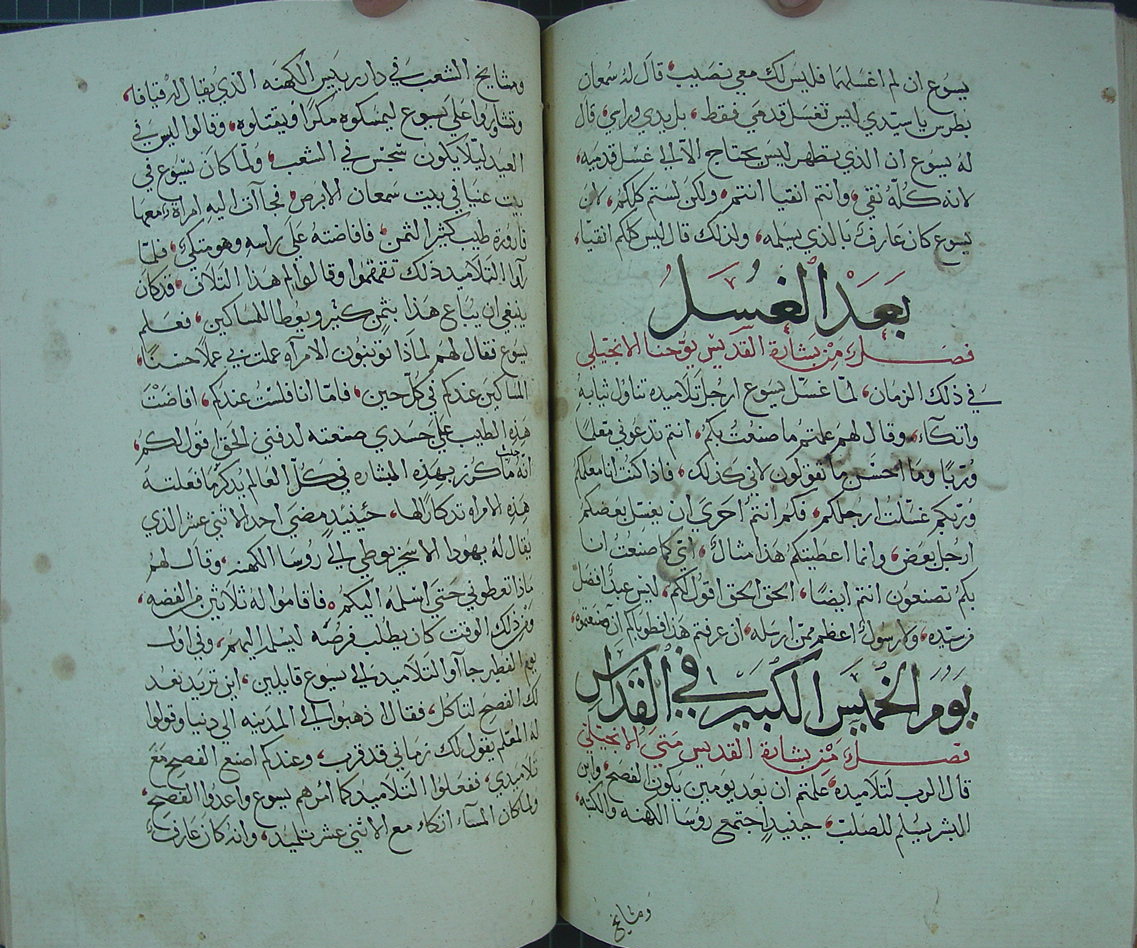 يسوع ان لم اغسلهما فليس لك معي نصيب قال له سمعان
بطرس يا سيدي ليس تغسل قدمي فقط بل يدي وراسي قال
له يسوع ان الذي يتطهر ليس يحتاج الا الى غسل قدميه
لانه كله نقي وانتم انقيا انتم ولكن لستم كلكم لان
يسوع كان عارف بالذي يسلمه ولذلك قال ليس كلكم انقيا
بَعَدْ الغُسل
فصل من بشارة القديس يوحنا الانجيلي
في ذلك الزمان لمّا غسل يسوع ارجل تلاميده تناول ثيابه
واتكاء وقال لهم علمتم ما صنعت بكم انتم تدعوني معلما
وربًا وما احسن ما تقولون لاني كذلك فاذا كنت انا معلمكم
وربكم غسلت ارجلكم فكم انتم احري ان يغسل بعضكم
ارجل بعض وانما اعطيتكم هذا مثالً لكي كما صنعت انا
بكم تصنعون انتم ايضًا الحق الحق اقول لكم ليس عبدًا افضل
من سيده ولا رسولً اعظم ممن ارسله ان عرفتم هذا فطوباكم ان صنعتموه
يوم الخميس الكبير في القداس
فصل من بشارة القديس متي الانجيلي
قال الرب لتلاميده علمتم ان بعد يومين يكون الفصح وابن
البشر يسلم للصلب حينيدٍ اجتمع روسا الكهنه والكتبه
ومشايخ
ومشايخ الشعب في دار رييس الكهنه الذي يقال له قيافا
وتشاوروا على يسوع ليمسكوه مكرًا ويقتلوه وقالوا ليس في
العيد ليلا يكون سجس في الشعب ولما كان يسوع في
بيت عنيا في بيت سمعان الابرص فجاآت اليه امراة معها
قارورة طيب كثير الثمن فافاضته على راسه وهو متكي فلما
راوا التلاميد ذلك تقمقموا وقالوا لم هذا التلاف قد كان
ينبغي ان يباع هذا بثمن كثير ويعطا للمساكين فعلم
يسوع فقال لهم لماذا تونبون الامراه عملت بي عملا حسنًا
المساكين عندكم في كل حين فامّا انا فلست عندكم افاضت
هذه الطيب على جسدي صنعته لدفني الحق اقول لكم
انه حيث ما كرز بهذه البشاره في كل العالم يدكر ما فعلته
هذه الامراه تدكارًا لها حينيدٍ مضى احد الاثني عشر الذي
يقال له يهودا الاسخريوطي الى روسا الكهنه وقال لهم
ماذا تعطوني حتى اسلمه اليكم فاقاموا له ثلاثين من الفضه
ومن ذلك الوقت كان يطلب فرصه ليسلمه اليهم وفي اول
يوم الفطير جاآوا التلاميد الى يسوع قايلين اين تريد نعد
لك الفصح لتاكل فقال ادهبوا الى المدينه الى دنيا وقولوا
له المعلم يقول لك زماني قد قرب وعندكم اصنع الفصح مع
تلاميدي ففعلوا التلاميد كما امرهم يسوع واعدوا الفصح
ولما كان المساء اتكاء مع الاثني عشر تلميد وانه كان عارف